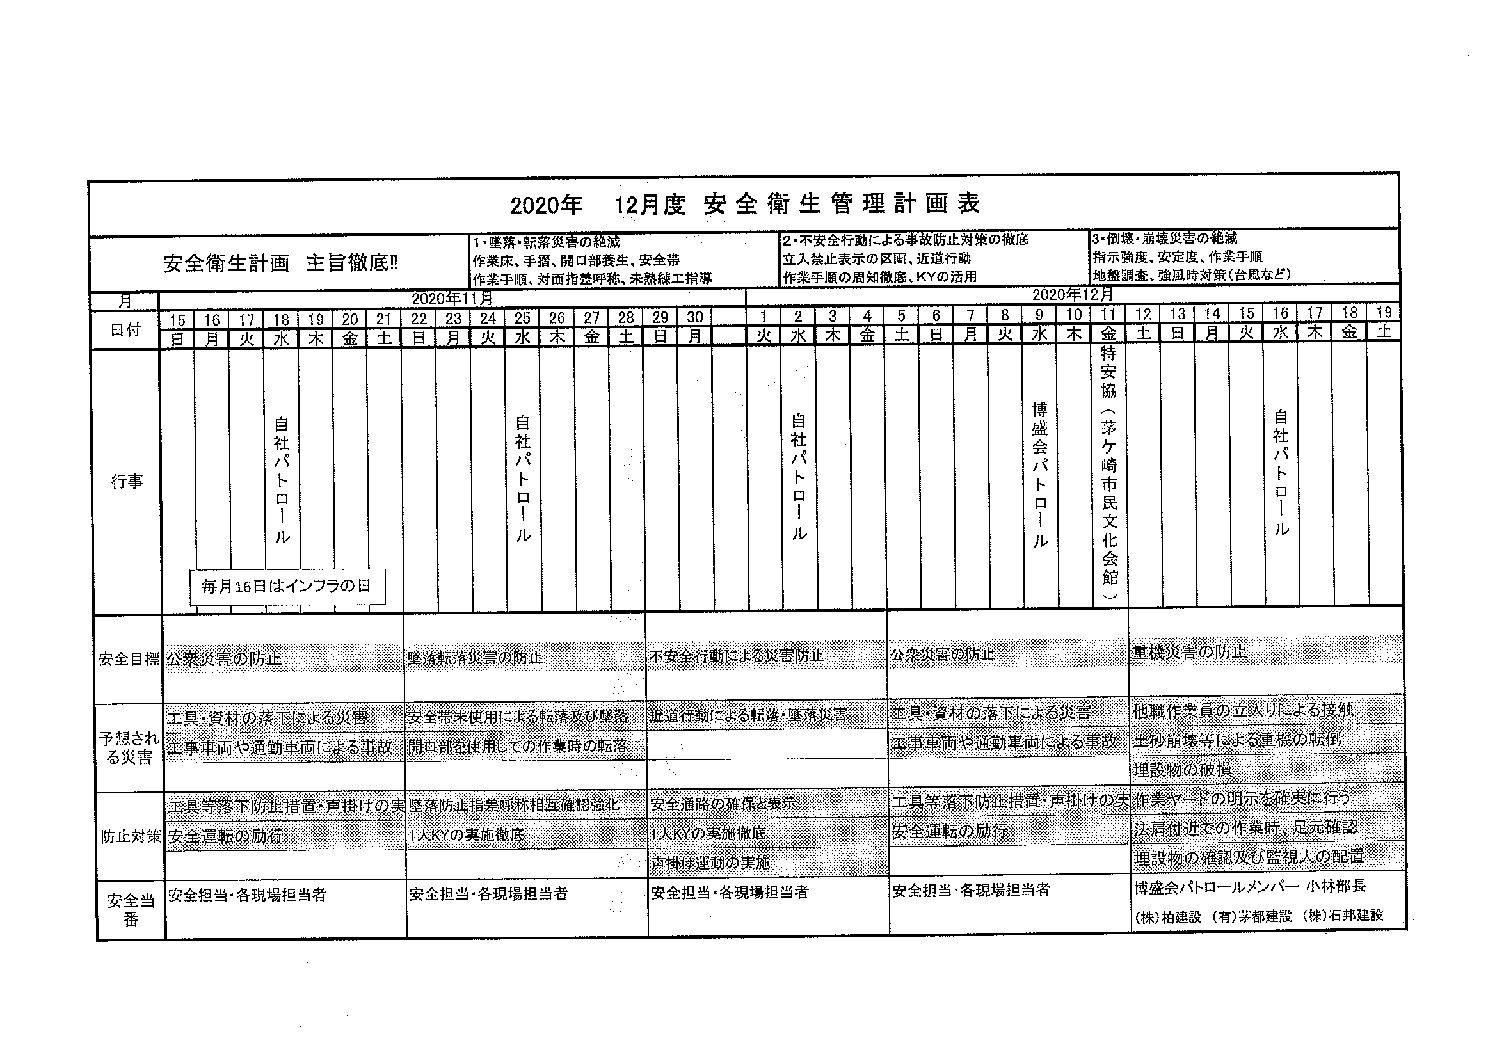 2020年 12月度 安全衛生管理計画表
安全衛生計画 主旨徹底!!
1・墜落・転落災害の絶滅
作業床、手摺、開口部養生、安全帯
作業手順、対面指差呼称、未熟練工指導
2・不安全行動による事故防止対策の徹底
立入禁止表示の区画、近道行動
作業手順の周知徹底、KYの活用
3・倒壊・崩壊災害の絶滅
指示強度、安定度、作業手順
地盤調査、強風時対策(台風など)
月 2020年11月 2020年12月
日付 15 16 17 18 19 20 21 22 23 24 25 26 27 28 29 30 1 2 3 4 5 6 7 8 9 10 11 12 13 14 15 16 17 18 19
日 月 火 水 木 金 土 日 月 火 水 木 金 土 日 月 火 水 木 金 土 日 月 火 水 木 金 土 日 月 火 水 木 金 土
行事
自社パトロール
自社パトロール
自社パトロール
博盛会パトロール
特安協(茅ケ崎市民文化会館)
自社パトロール
毎月16日はインフラの日
安全目標 公衆災害の防止 墜落転落災害の防止 不安全行動による災害防止 公衆災害の防止 重機災害の防止
予想される災害
工具・資材の落下による災害 安全帯未使用による転落及び墜落 近道行動による転落・墜落災害 工具・資材の落下による災害 他職作業員の立入りによる接触
工事車両や通勤車両による事故 開口部を使用しての作業時の転落 工事車両や通勤車両による事故 土砂崩壊等による重機の転倒
埋設物の破損
防止対策
工具等落下防止措置・声掛けの実 墜落防止指差呼称相互確認強化 安全通路の確保と表示 工具等落下防止措置・声掛けの実 作業ヤードの明示を確実に行う
安全運転の励行 1人KYの実施徹底 1人KYの実施徹底 安全運転の励行 法肩付近での作業時、足元確認
声掛け運動の実施 埋設物の確認及び監視人の配置
安全当番
安全担当・各現場担当者 安全担当・各現場担当者 安全担当・各現場担当者 安全担当・各現場担当者 博盛会パトロールメンバー 小林部長
(株)柏建設 (有)茅都建設 (株)石邦建設